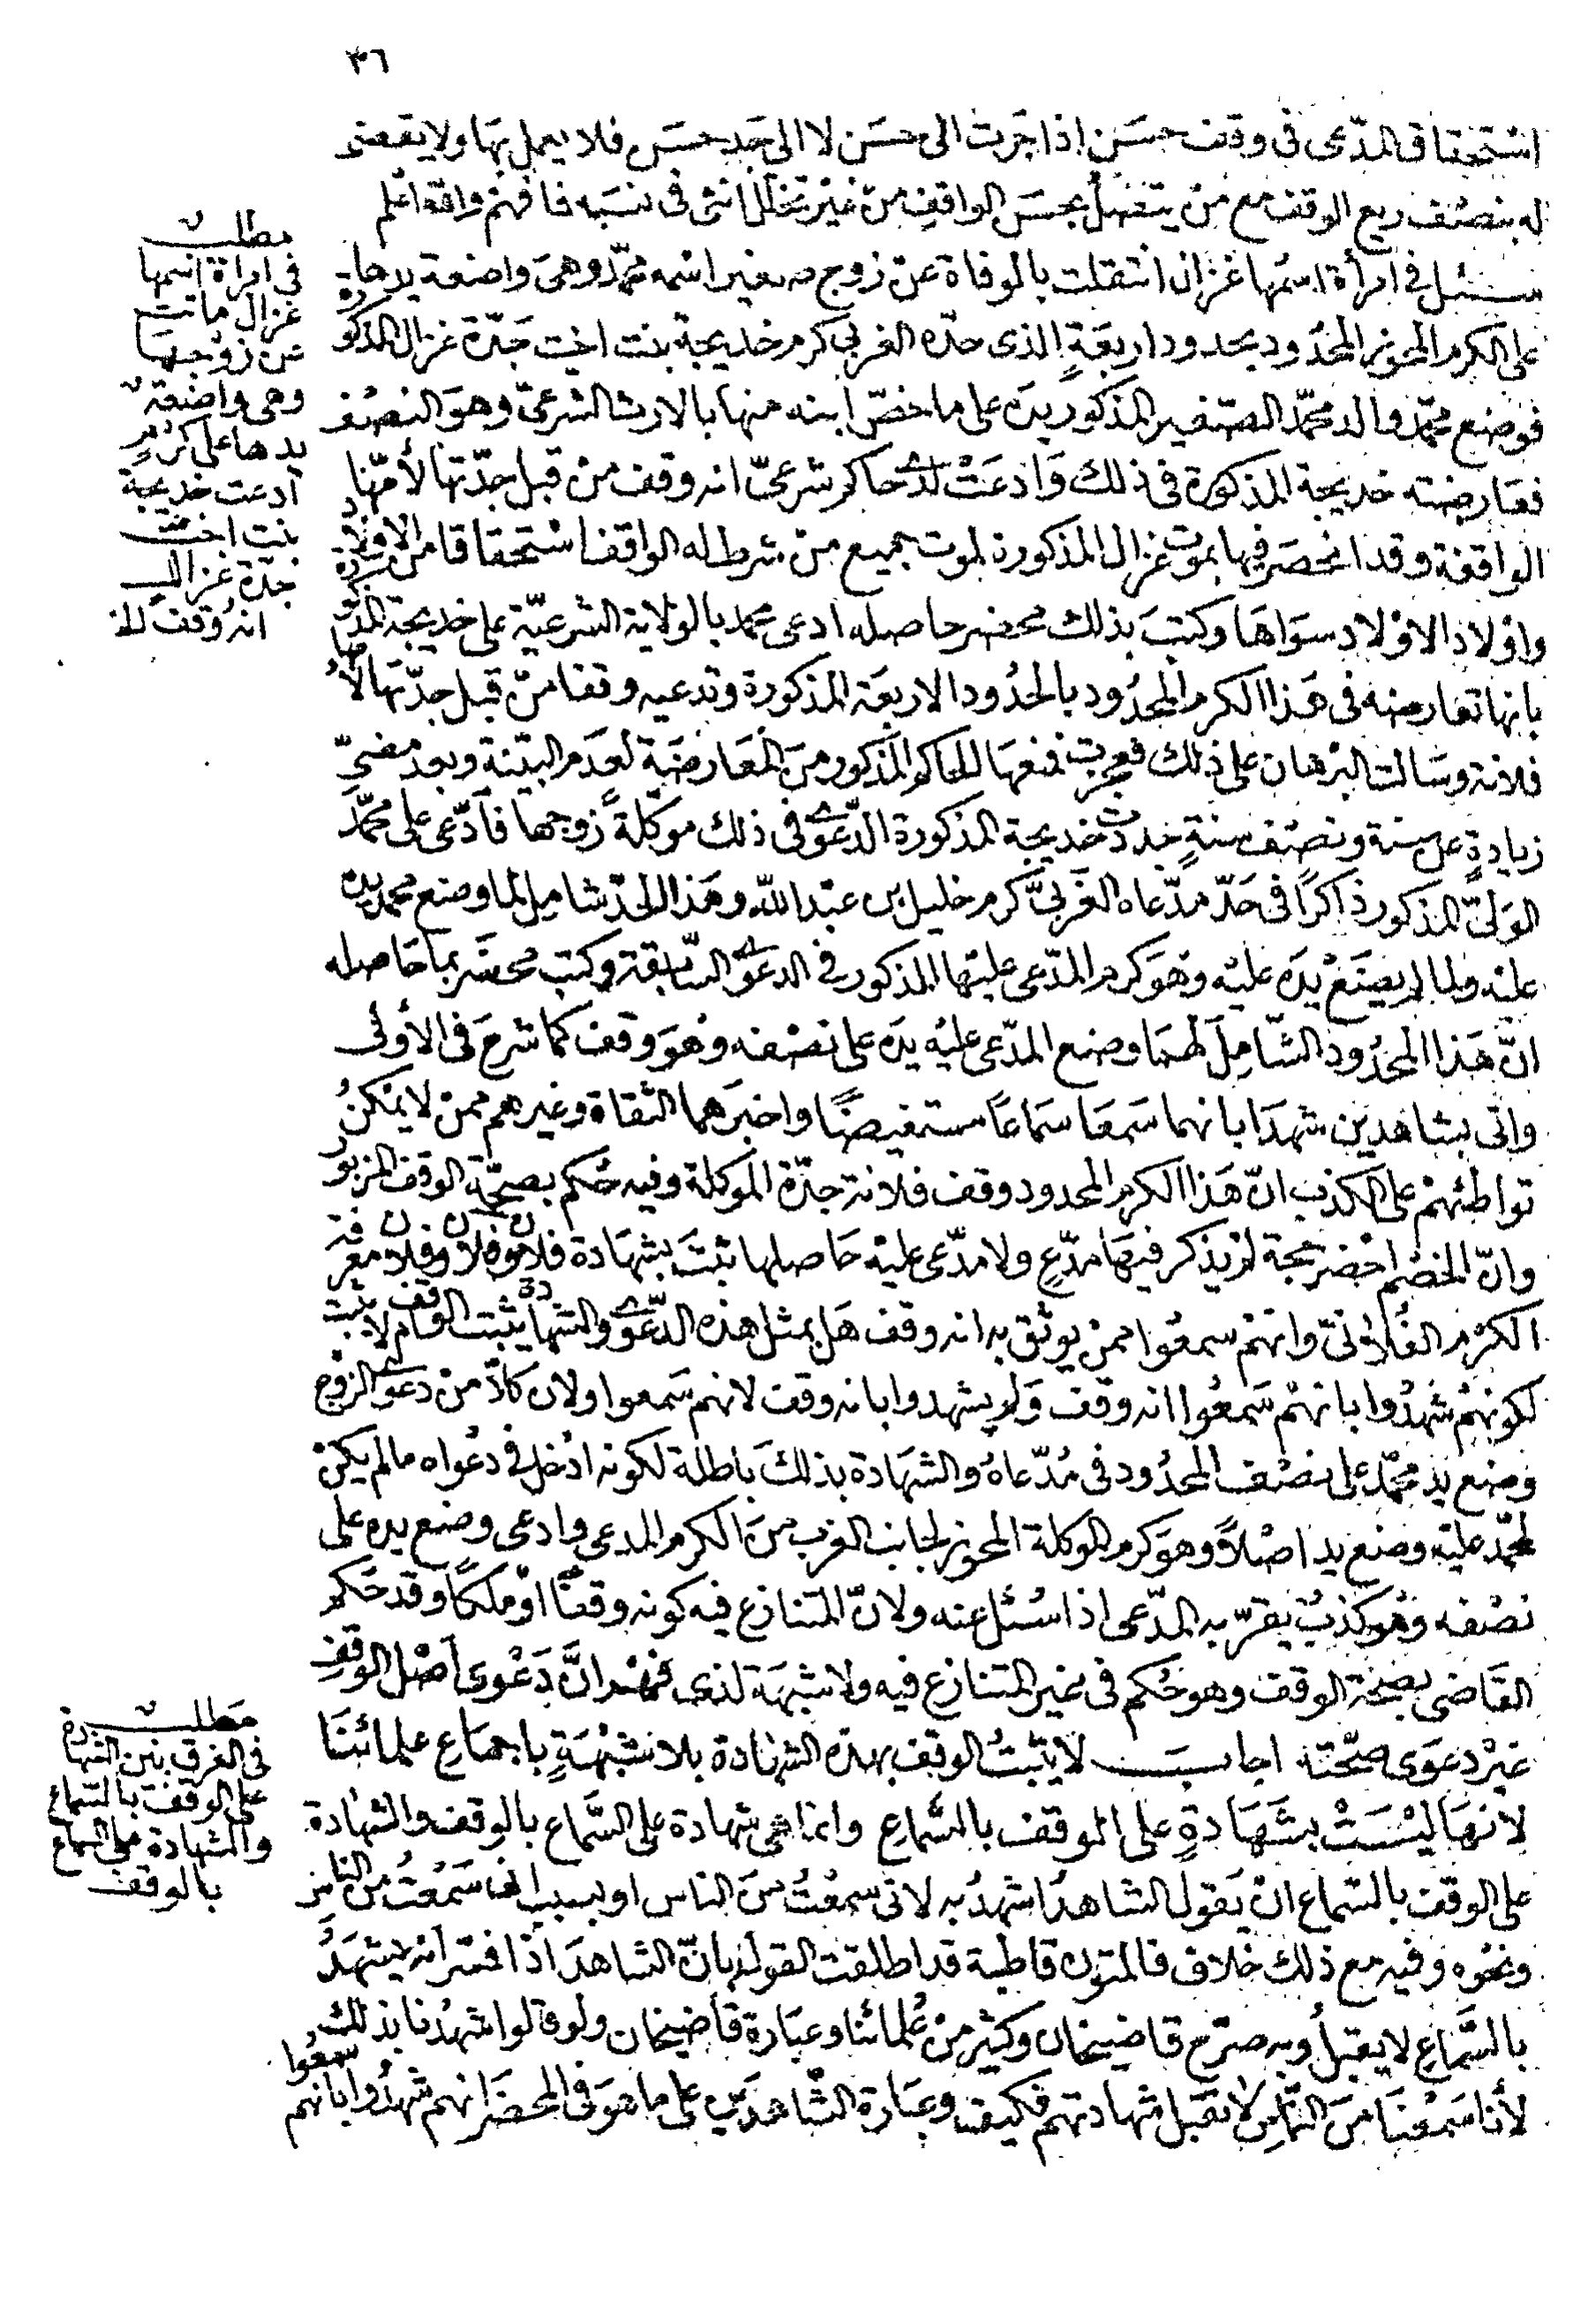 ٣٦
استحقاق المدّعى فى وقف حسَن اذا جَرت الى حسَن لا الى جَد حسَن فلا يعمل بهَا ولا يقضى
له بنصْف ريع الوقف مع منْ يتصِل بحسَن الواقفِ منْ غيْر تخلل انثى فى نسَبه فافهمْ والله اعْلم
سئل فى امرأة اسمُها غزال انتقلت بالوفاة عنْ زوج صغير اسْمه محمّد وهىَ واضعة يدهاَ
على الكرم المحوز المحدُود بحدود اربعَةٍ الذى حدّه الغربى كرم خديجة بنت اخت جَدّة غزال المذكورة
فوضع محمّد والد محمّد الصّغير المذكور يدَه على ما خصّ ابنه منها بالارث الشرعىّ وهوَ النصْف
فعَارضته خديجة المذكورة فى ذلك وَادعَتْ لدى حاكم شرعىّ انه وقف منْ قبل جدّتها لأمّها
الواقفة وقد انحصَر فيها بموت غزال المذكورة لموت جميع منْ شرط له الواقف استحقاقا من الاولاد
واوْلاد الاوْلاد سوَاهَا وكتبَ بذلك محضر حاصله ادعى محمد بالولاية الشرعيّة على خديجة المذكورة
بانها تعارضه فى هَذا الكرم المحدُود بالحدُود الاربعَة المذكورة وتدعيه وقفا منْ قبل جدّتهَا لأمّها
فلانة وسَالت البرْهان على ذلك فعجزت فمنعهَا الحاكم المذكور منَ المعَارضَة لعَدم البيّنة وبعد مضىّ
زيادةٍ على سنة ونصْف سنةٍ جددت خديجة المذكورة الدّعوَى فى ذلك موكلةً زوجها فادّعى على محمّد
الوَلىّ المذكور ذاكرًا فى حَدّ مدّعاه الغَربىَّ كرم خليل بن عبْد الله وهَذا الحدّ شامِل لما وضع محمد يده
عليْه ولما لم يضَعْ يدَه عليْه وهوَ كرم المدّعى عليْها المذكور فى الدعوَى السّابقة وكتب محضَر بما حَاصله
انّ هَذا المحدُود الشّامِلَ لهمَا وضع المدّعى عليْه يدَه على نصْفه وهوَ وقف كما شرحَ فى الأولى
واتى بشاهديْن شهدَا بانهما سَمعَا سَماعًا مستفيضًا واخبرَهما الثقاة وغيْرهم ممنْ لا يمْكنُ
تواطئهمْ على الكذب انّ هَذا الكرم المحدود وقف فلانة جدّة الموكلة وفيه حُكم بصحّة الوقف المزبور
وانّ الخصْم احْضر حجة لم يذكر فيهَا مدّع ولا مدّعى عليْه حَاصلها ثبتَ بشهَادة فلان وفلان وفلان معرفة
الكرْم الفُلانىّ وانهمْ سمعُوا ممنْ يوثق به انه وقف هَل بمثل هذه الدّعوَى والشهادة يثبت الوقف ام لا يثبت
لكونهمْ شهدُوا بانهمْ سَمعُوا انه وقف وَلم يشهدوا بانه وقف لانهم سَمعوا ولان كلاّ منْ دعوَى الزوج
وضع يد محمّد على نصْف المحدُود فى مُدّعاهُ والشهَادة بذلكَ باطلة لكونه ادْخل فى دعْواه ما لم يكنْ
لمحمّد عليْه وضع يد اصْلاً وهوَ كرم الموكلة المحوز لجانب الغرب منَ الكرم المدعى وادعى وضع يده على
نصْفه وهُوَ كذبٌ يقرّ به المدّعى اذا سُئل عنه ولانّ المتنازع فيه كونه وقفًا اوْ ملكًا وقد حَكم
القَاضى بصحّة الوقف وهو حُكم فى غير المتنازع فيه ولا شبهَة لذى فهْم انَّ دَعْوى اصْل الوقفِ
غيْر دعوَى صحّته اجابَـ لا يثبتُ الوقف بهذه الشهَادة بلا شبْهَةٍ باجمَاع علمائنَا
لانهَا ليْسَتْ بشَهَادةٍ على الوقف بالسَّماعِ وانما هى شهادة على السَّماع بالوقف والشهادة
على الوقف بالسّماع انْ يَقول الشاهدُ اشهدُ به لانى سمعْتُ منَ الناس او بسبب انى سَمعْتُ من الناس
ونحْوه وفيه مع ذلك خلاف فالمتون قاطبة قد اطلقت القول بانّ الشاهدَ اذا فسّر انه يشهَدُ
بالسَّماع لا يقبلُ وبه صرّح قاضيخان وكثيْر منْ عُلمائنا وعبَارة قاضيخان ولو قالوا شهدْنا بذلك
لأنا سَمعْنَا منَ النّاسِ لا تقبل شهَادتهم فكيف وعبَارة الشّاهدَيْن على ما هوَ فى المحضَر انهم شهدُوا بانهم سمعُوا
مطلب
فى امراة اسمها
غزال ماتت
عن زوجها
وهى واضعة
يدها على كرْم
ادعت خديجة
بنت اخت
جدّة غزال
انه وقف الخ
مَطلب
فى الفرق بيْن الشهادة
على الوقف بالسّماع
والشهادة على السماع
بالوقف